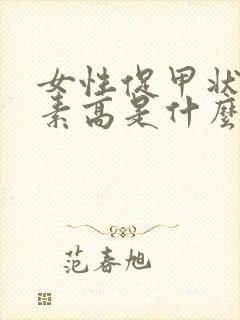 女性促甲状
素高是什麼
范春旭